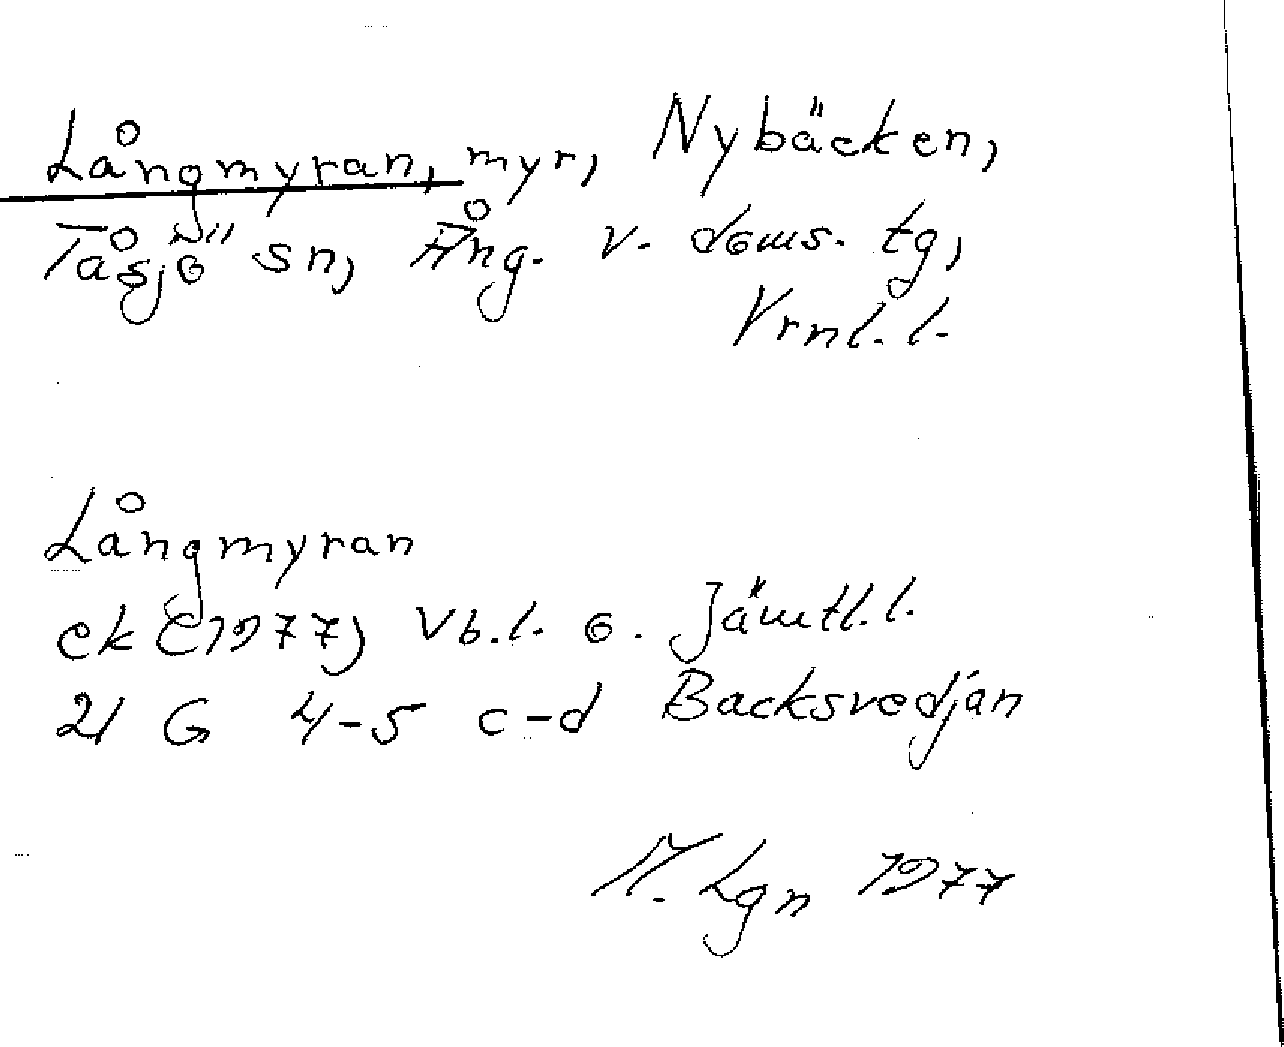 Långmyran, myr, Nybäcken,
Tåsjö sn, Ång. v. doms. tg,
Vrml. l.
Långmyran
ek (1977) Vb. l. o. Jämtl. l.
21 G 4-5 c-d Backsvedjan
M. Lgn 1977